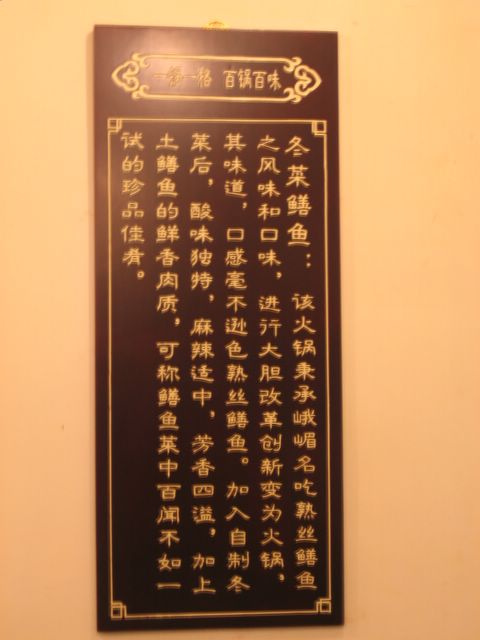 一锅一格 百锅百味
冬菜鳝鱼：该火锅秉承峨嵋名吃熟丝鳝鱼
之风味和口味，进行大胆改革创新变为火锅，
其味道，口感毫不逊色熟丝鳝鱼。加入自制冬
菜后，酸味独特，麻辣适中，芳香四溢，加上
土鳝鱼的鲜香肉质，可称鳝鱼菜中百闻不如一
试的珍品佳肴。